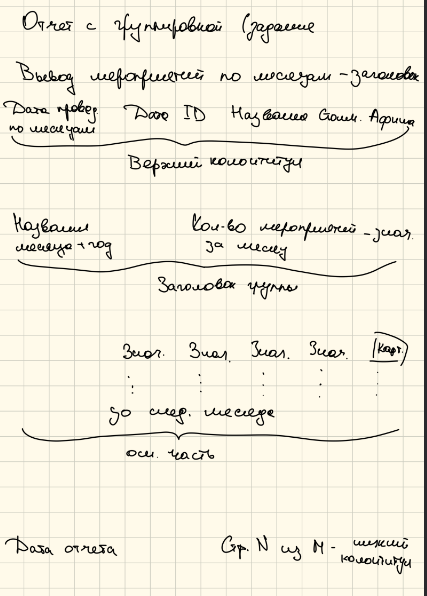 Отчет с группировкой (задание
Вывод мероприятий по месяцам - заголовок
Дата провед. Дата ID Название Стоим. Афиша
по месяцам
Верхний колонтитул
Название Кол-во мероприятий - знач.
месяца + год за месяц
Заголовок группы
Знач. Знач. Знач. Знач. Карт.
до след. месяца
осн. часть
Дата отчета Стр. N из M - нижний
колонтитул